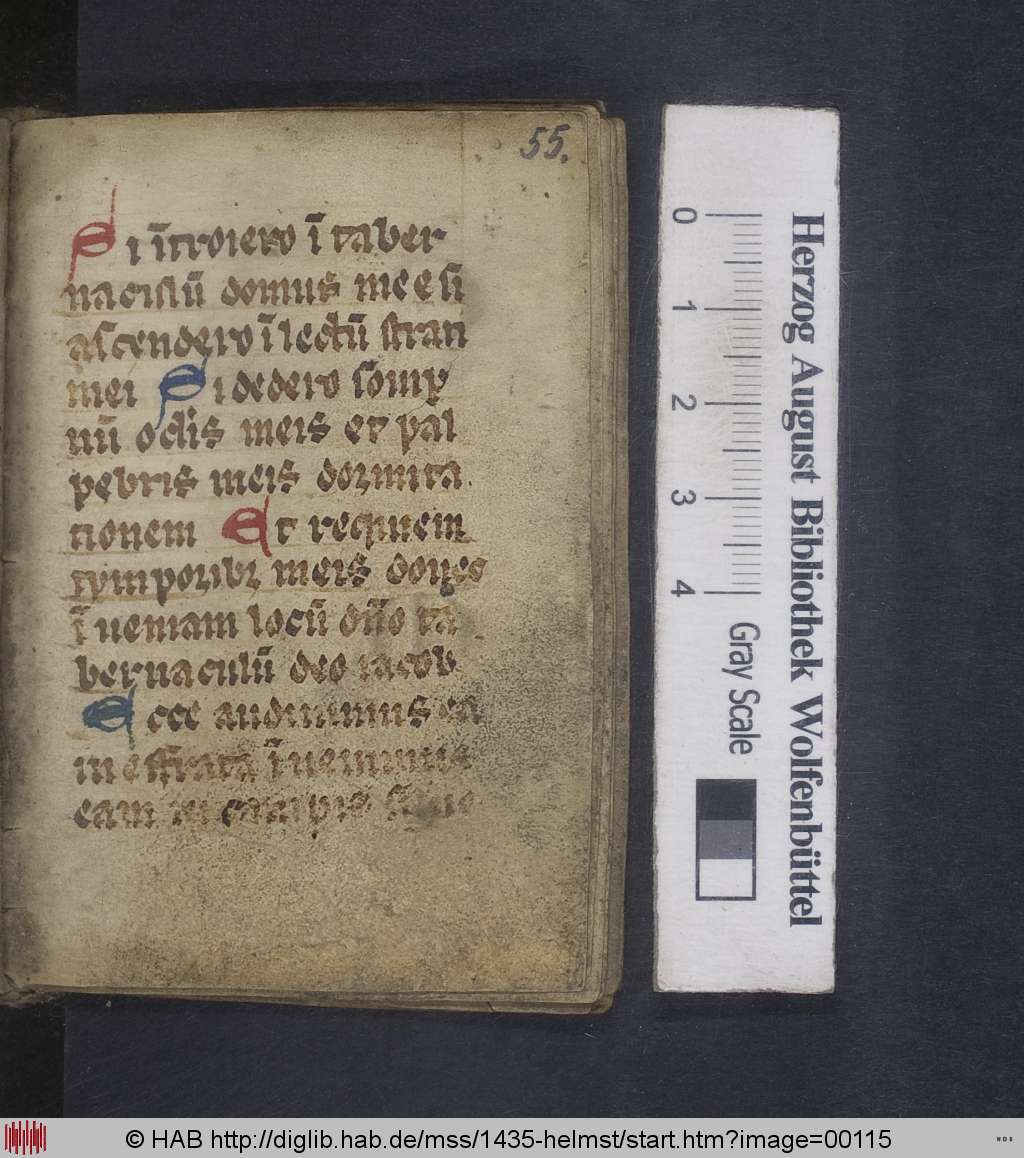 55.
Si ītroiero ī taber
naculū domus mee si
ascendero ī lectū stra
mei Si dedero somp
nū oclis meis et pal
pebris meis dormita
tionem Et requiem
tymporibꝫ meis donec
īueniam locū dño ta
bernaculū deo iacob
Ecce audiuimus ea
in effrata īuenimus
eam in campis
0
1
2
3
4
Gray Scale
Herzog August Bibliothek Wolfenbüttel
© HAB http://diglib.hab.de/mss/1435-helmst/start.htm?image=00115